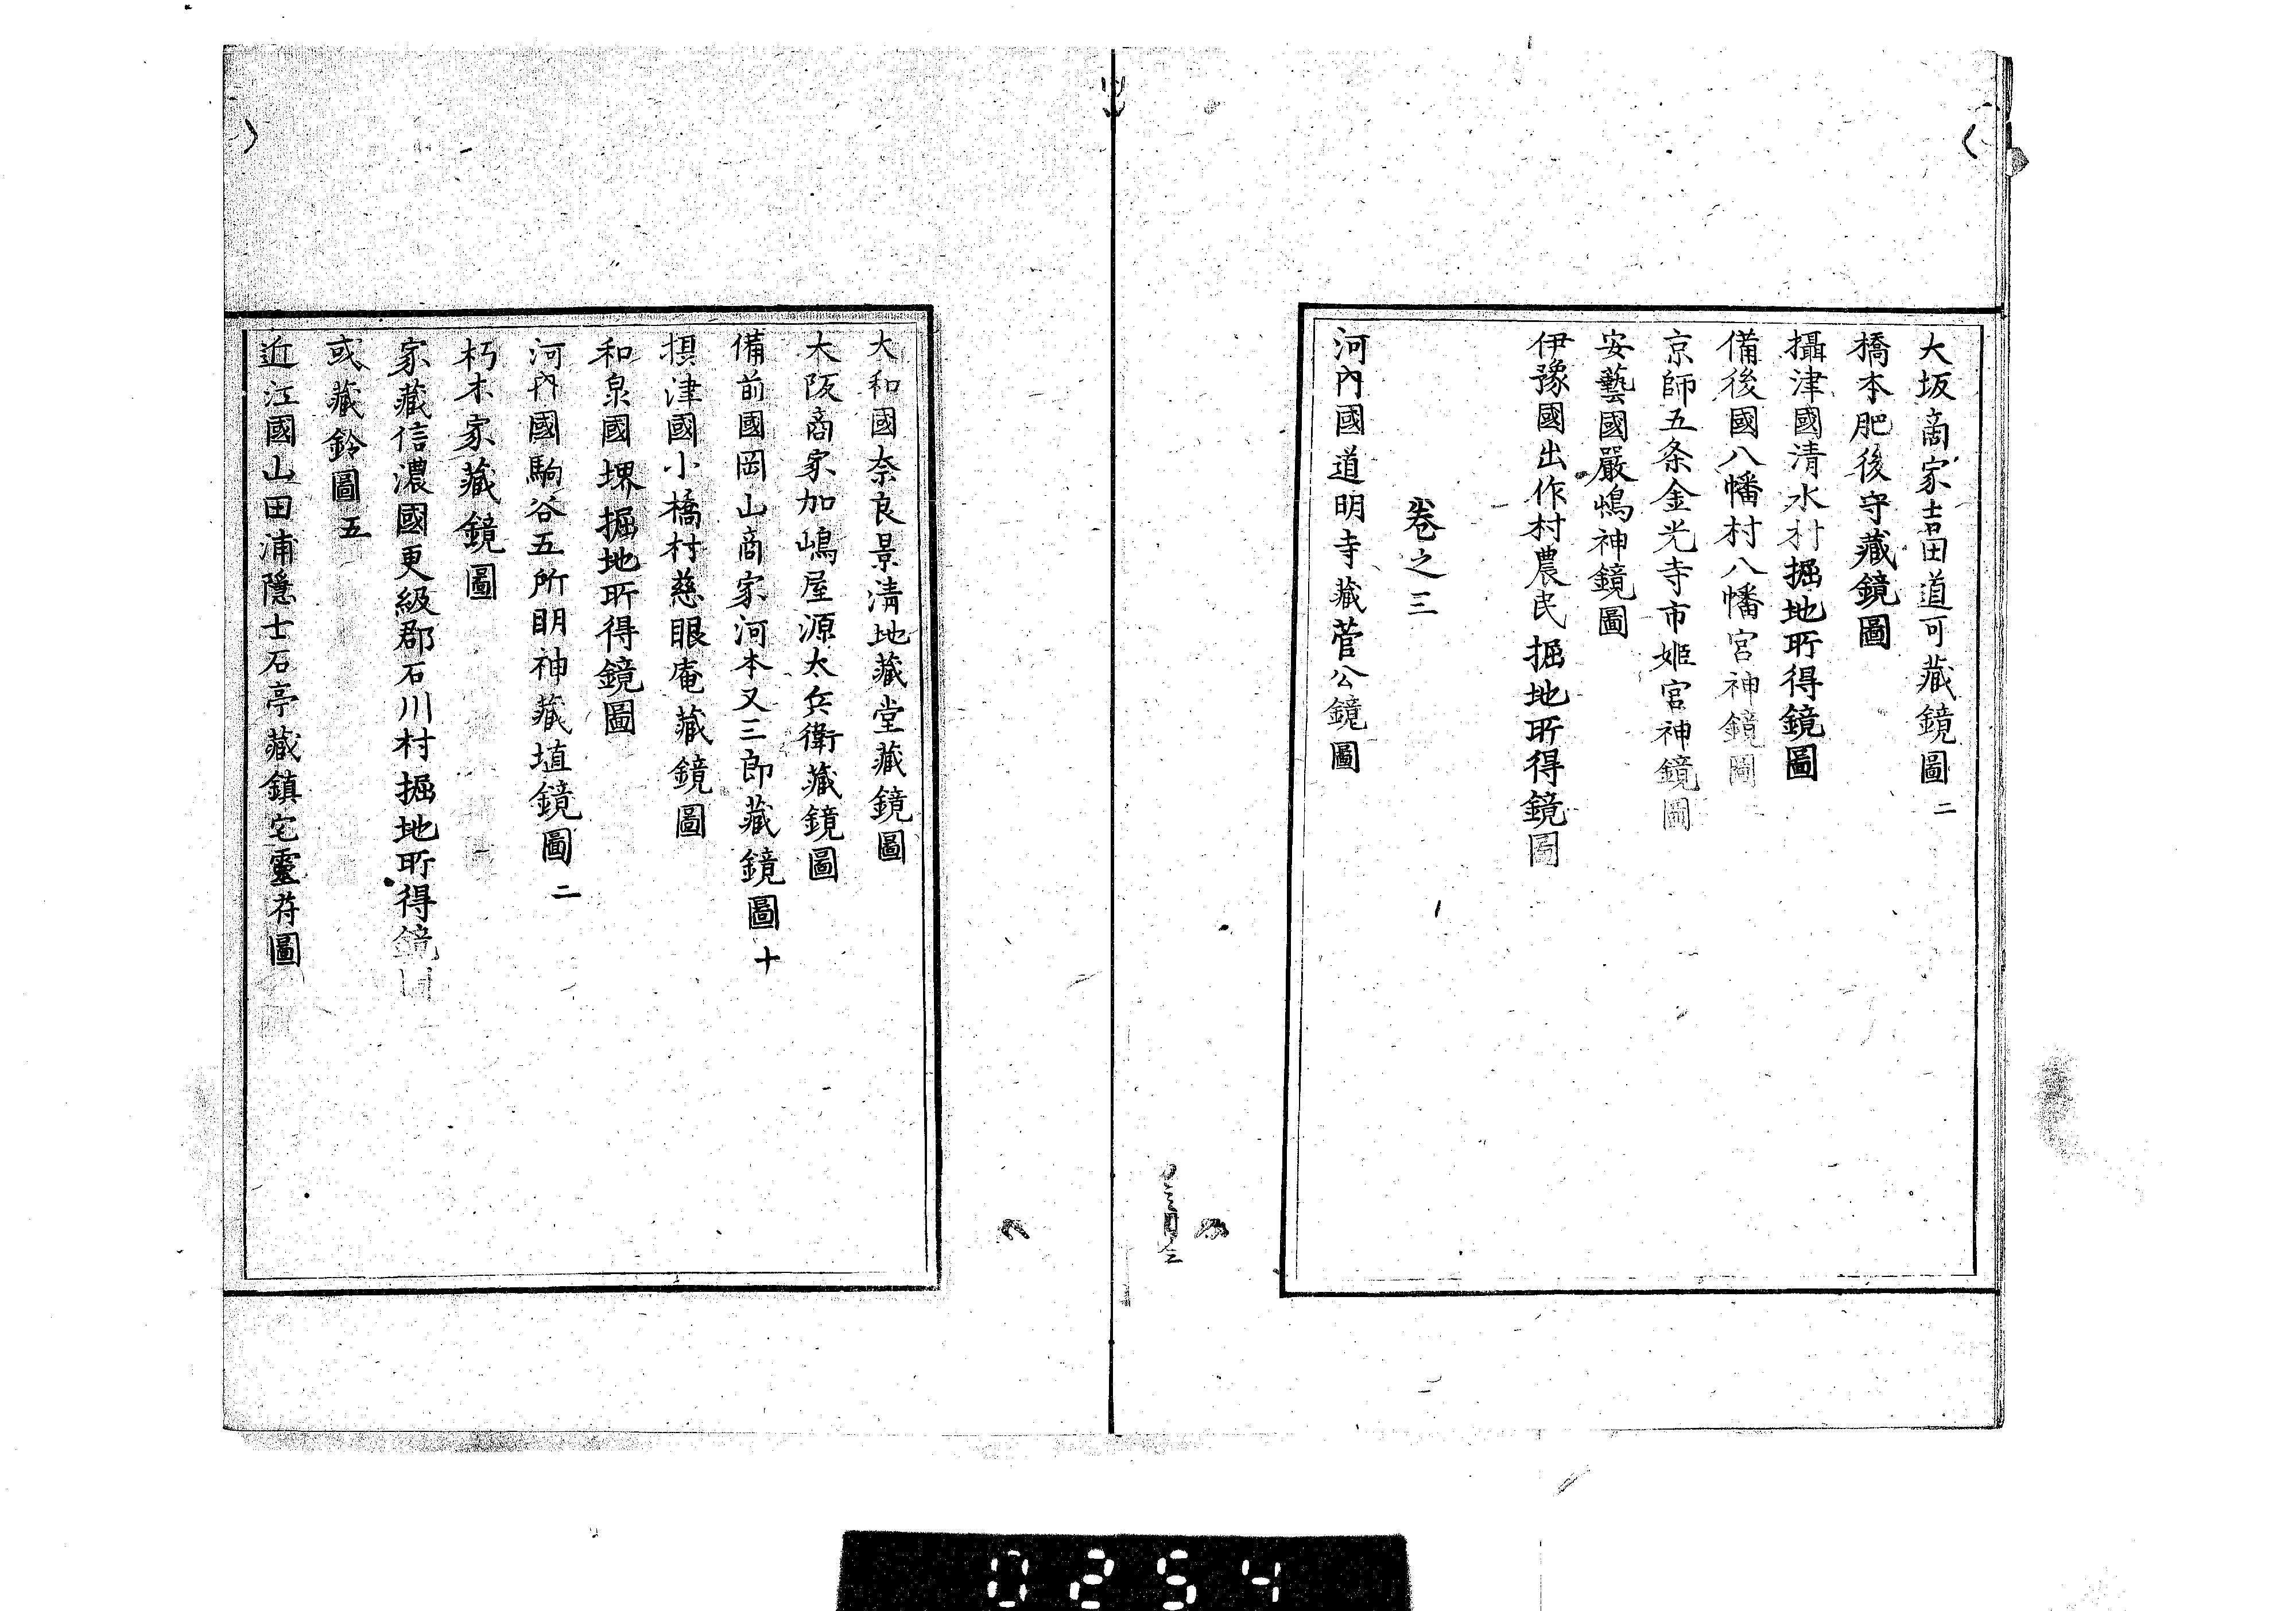 大坂商家吉田道可藏鏡圖二
橋本肥後守藏鏡圖
攝津國清水村掘地所得鏡圖
備後國八幡村八幡宮神鏡圖
京師五条金光寺市姬宮神鏡圖
安藝國嚴嶋神鏡圖
伊豫國出作村農民掘地所得鏡圖
卷之三
河內國道明寺藏菅公鏡圖
大和國奈良景清地藏堂藏鏡圖
大阪商家加嶋屋源太兵衛藏鏡圖
備前國岡山商家河本又三郎藏鏡圖十
摂津國小橋村慈眼庵藏鏡圖
和泉國堺掘地所得鏡圖
河內國駒谷五所明神藏埴鏡圖二
朽木家藏鏡圖
家藏信濃國更級郡石川村掘地所得鏡圖
或藏鈴圖五
近江國山田浦隱士石亭藏鎮宅靈符圖
0254